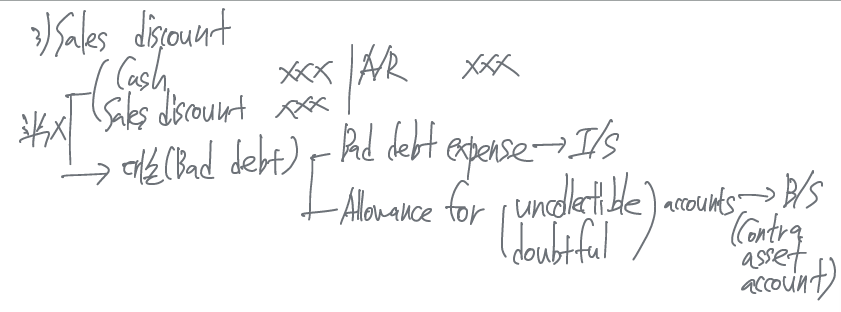 3) Sales discount
Cash xxx | A/R xxx
Sales discount xxx
→ 대손(Bad debt) Bad debt expense → I/S
Allowance for (uncollectible) accounts → B/S
(doubtful)
(Contra
asset
account)